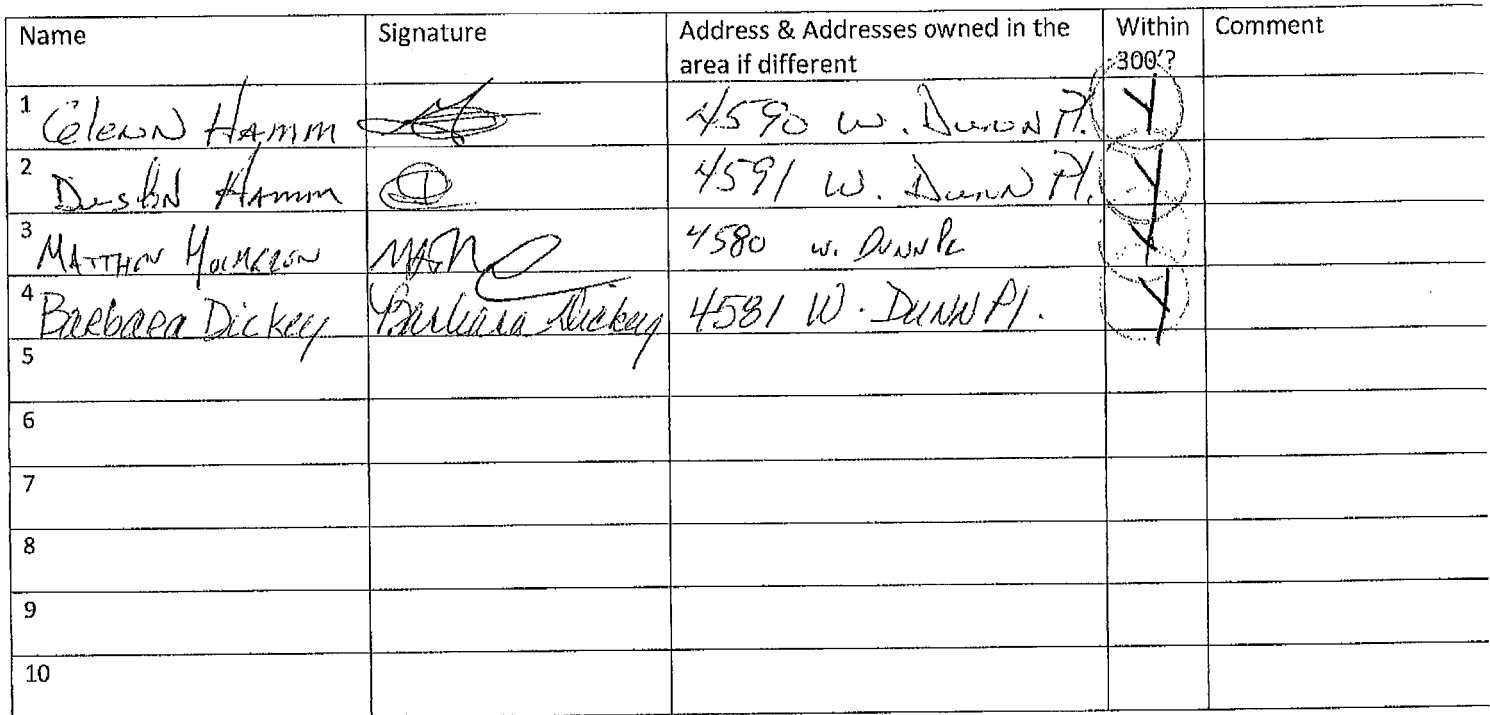 Name Signature Address & Addresses owned in the Within Comment
area if different 300'?
1 Glenn Hamm 4590 W. Dunn Pl. Y
2 Dustin Hamm 4591 W. Dunn Pl. Y
3 Matthew 4580 W. Dunn Pl Y
4 Barbara Dickey Barbara Dickey 4581 W. Dunn Pl. Y
5
6
7
8
9
10